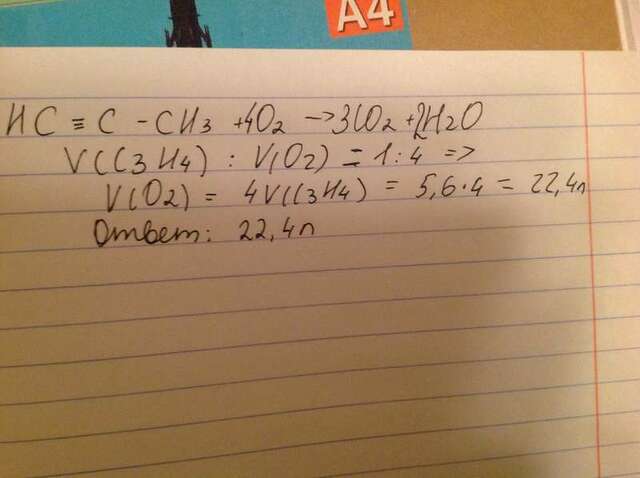 A4
HC ≡ C - CH3 +4O2 -> 3CO2 + 2H2O
V(C3H4) : V(O2) = 1:4 =>
V(O2) = 4V(C3H4) = 5,6·4 = 22,4л
Ответ: 22,4л